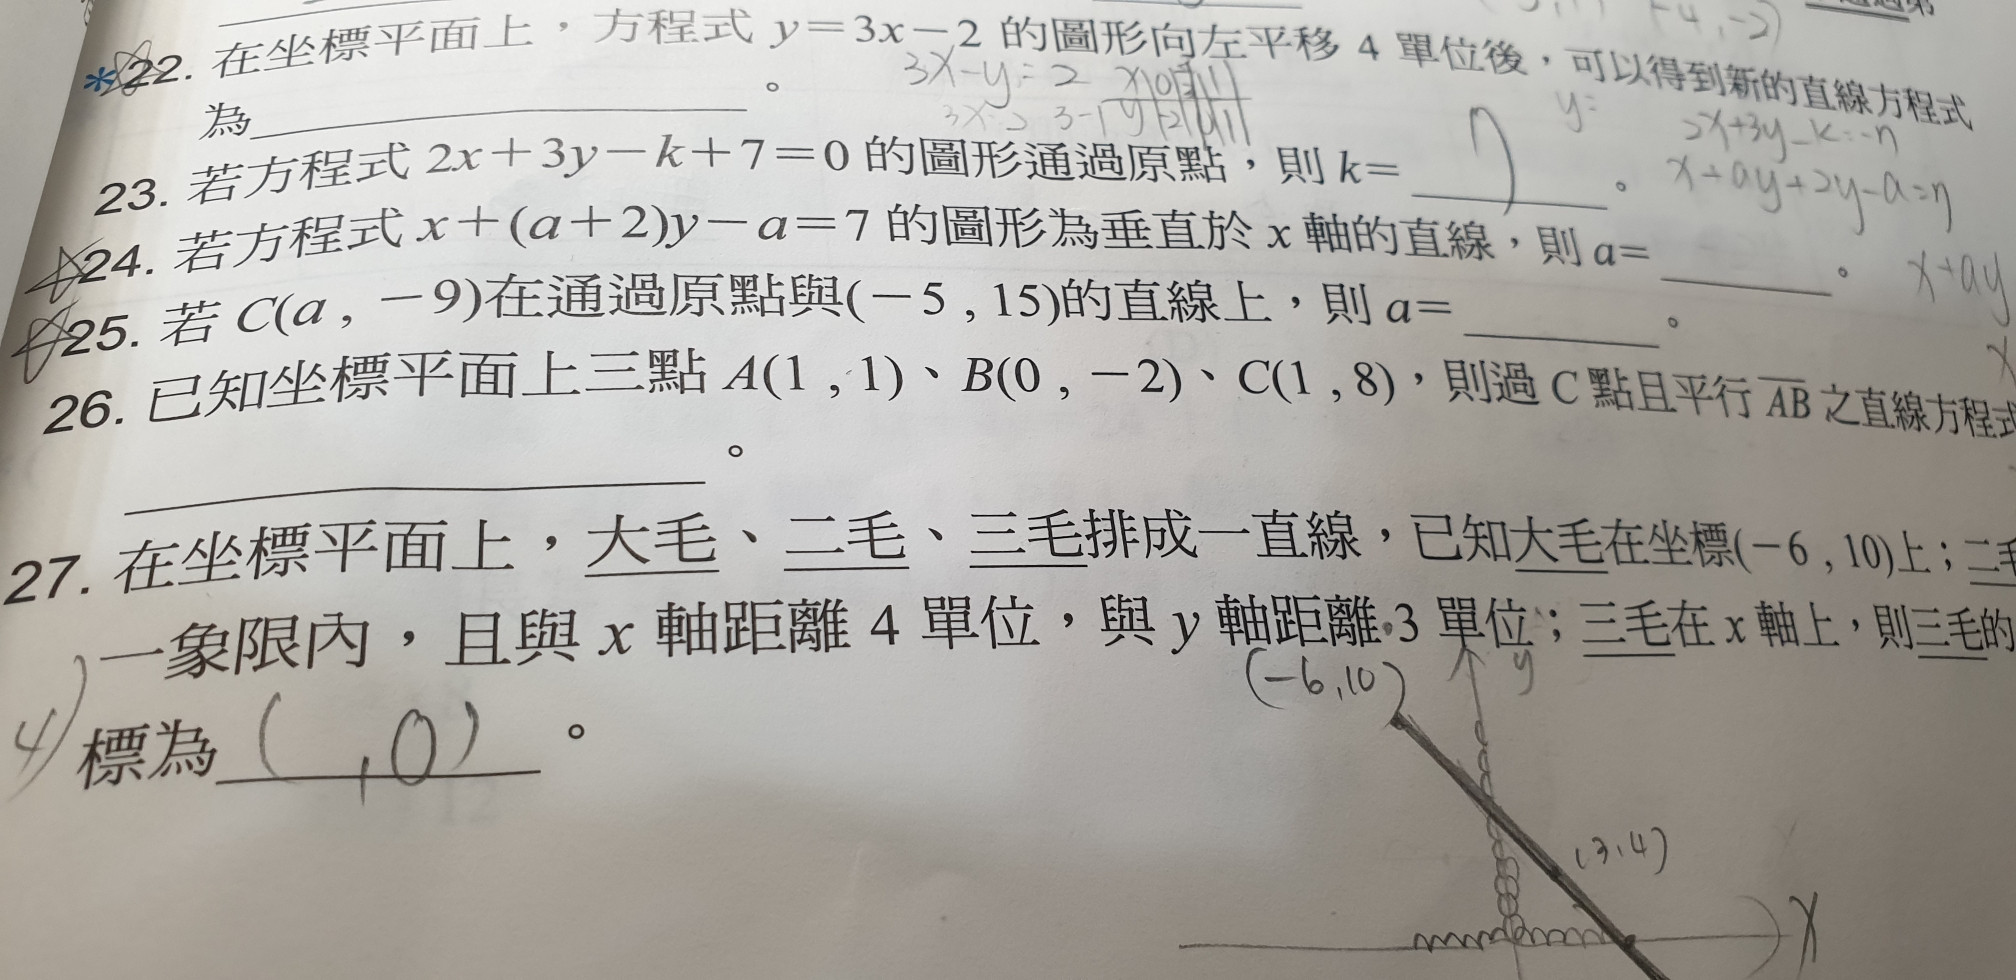 *22. 在坐標平面上，方程式 y=3x-2 的圖形向左平移 4 單位後，可以得到新的直線方程式
3x-y=2
為＿＿＿＿＿＿。
23. 若方程式 2x+3y-k+7=0 的圖形通過原點，則 k= 7 。
2x+3y-k=-7
x+ay+2y-a=7
24. 若方程式 x+(a+2)y-a=7 的圖形為垂直於 x 軸的直線，則 a=＿＿＿。
x+ay
25. 若 C(a , -9)在通過原點與(-5 , 15)的直線上，則 a=＿＿＿。
26. 已知坐標平面上三點 A(1 , 1)、B(0 , -2)、C(1 , 8)，則過 C 點且平行 AB 之直線方程式
＿＿＿＿＿＿。
27. 在坐標平面上，大毛、二毛、三毛排成一直線，已知大毛在坐標(-6 , 10)上；二毛
一象限內，且與 x 軸距離 4 單位，與 y 軸距離 3 單位；三毛在 x 軸上，則三毛的
4) 標為( ,0)。
(-6,10)
y
(3,4)
x